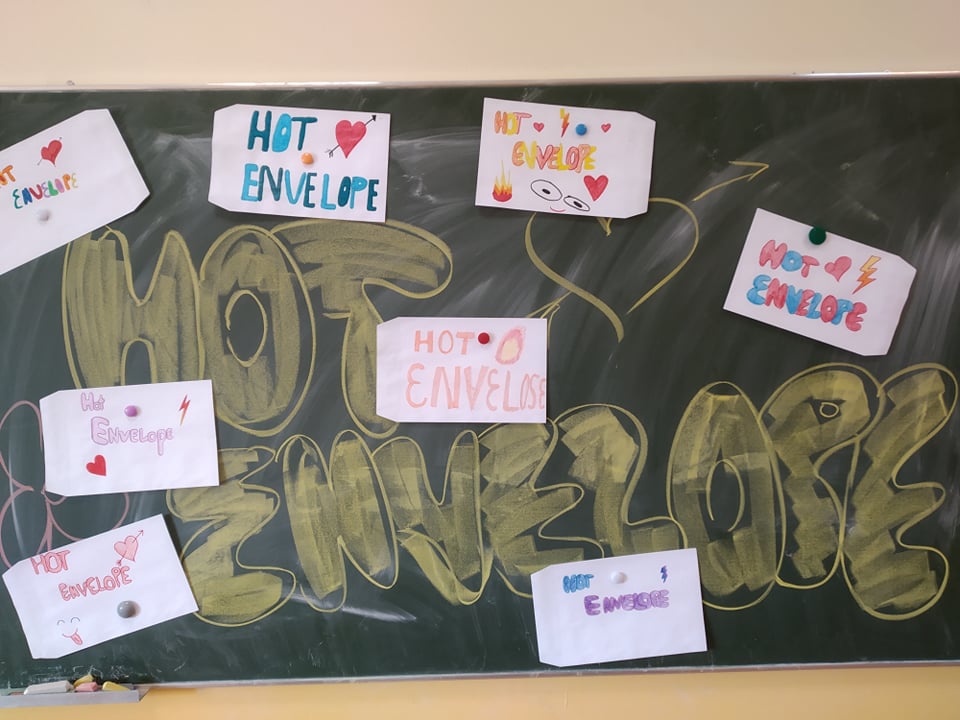 ENVELOPE
HOT
ENVELOPE
HOT
ENVELOPE
HOT
ENVELOPE
HOT
ENVELOPE
HOT
ENVELOPE
Hot
ENVELOPE
HOT
ENVELOPE
HOT
ENVELOPE